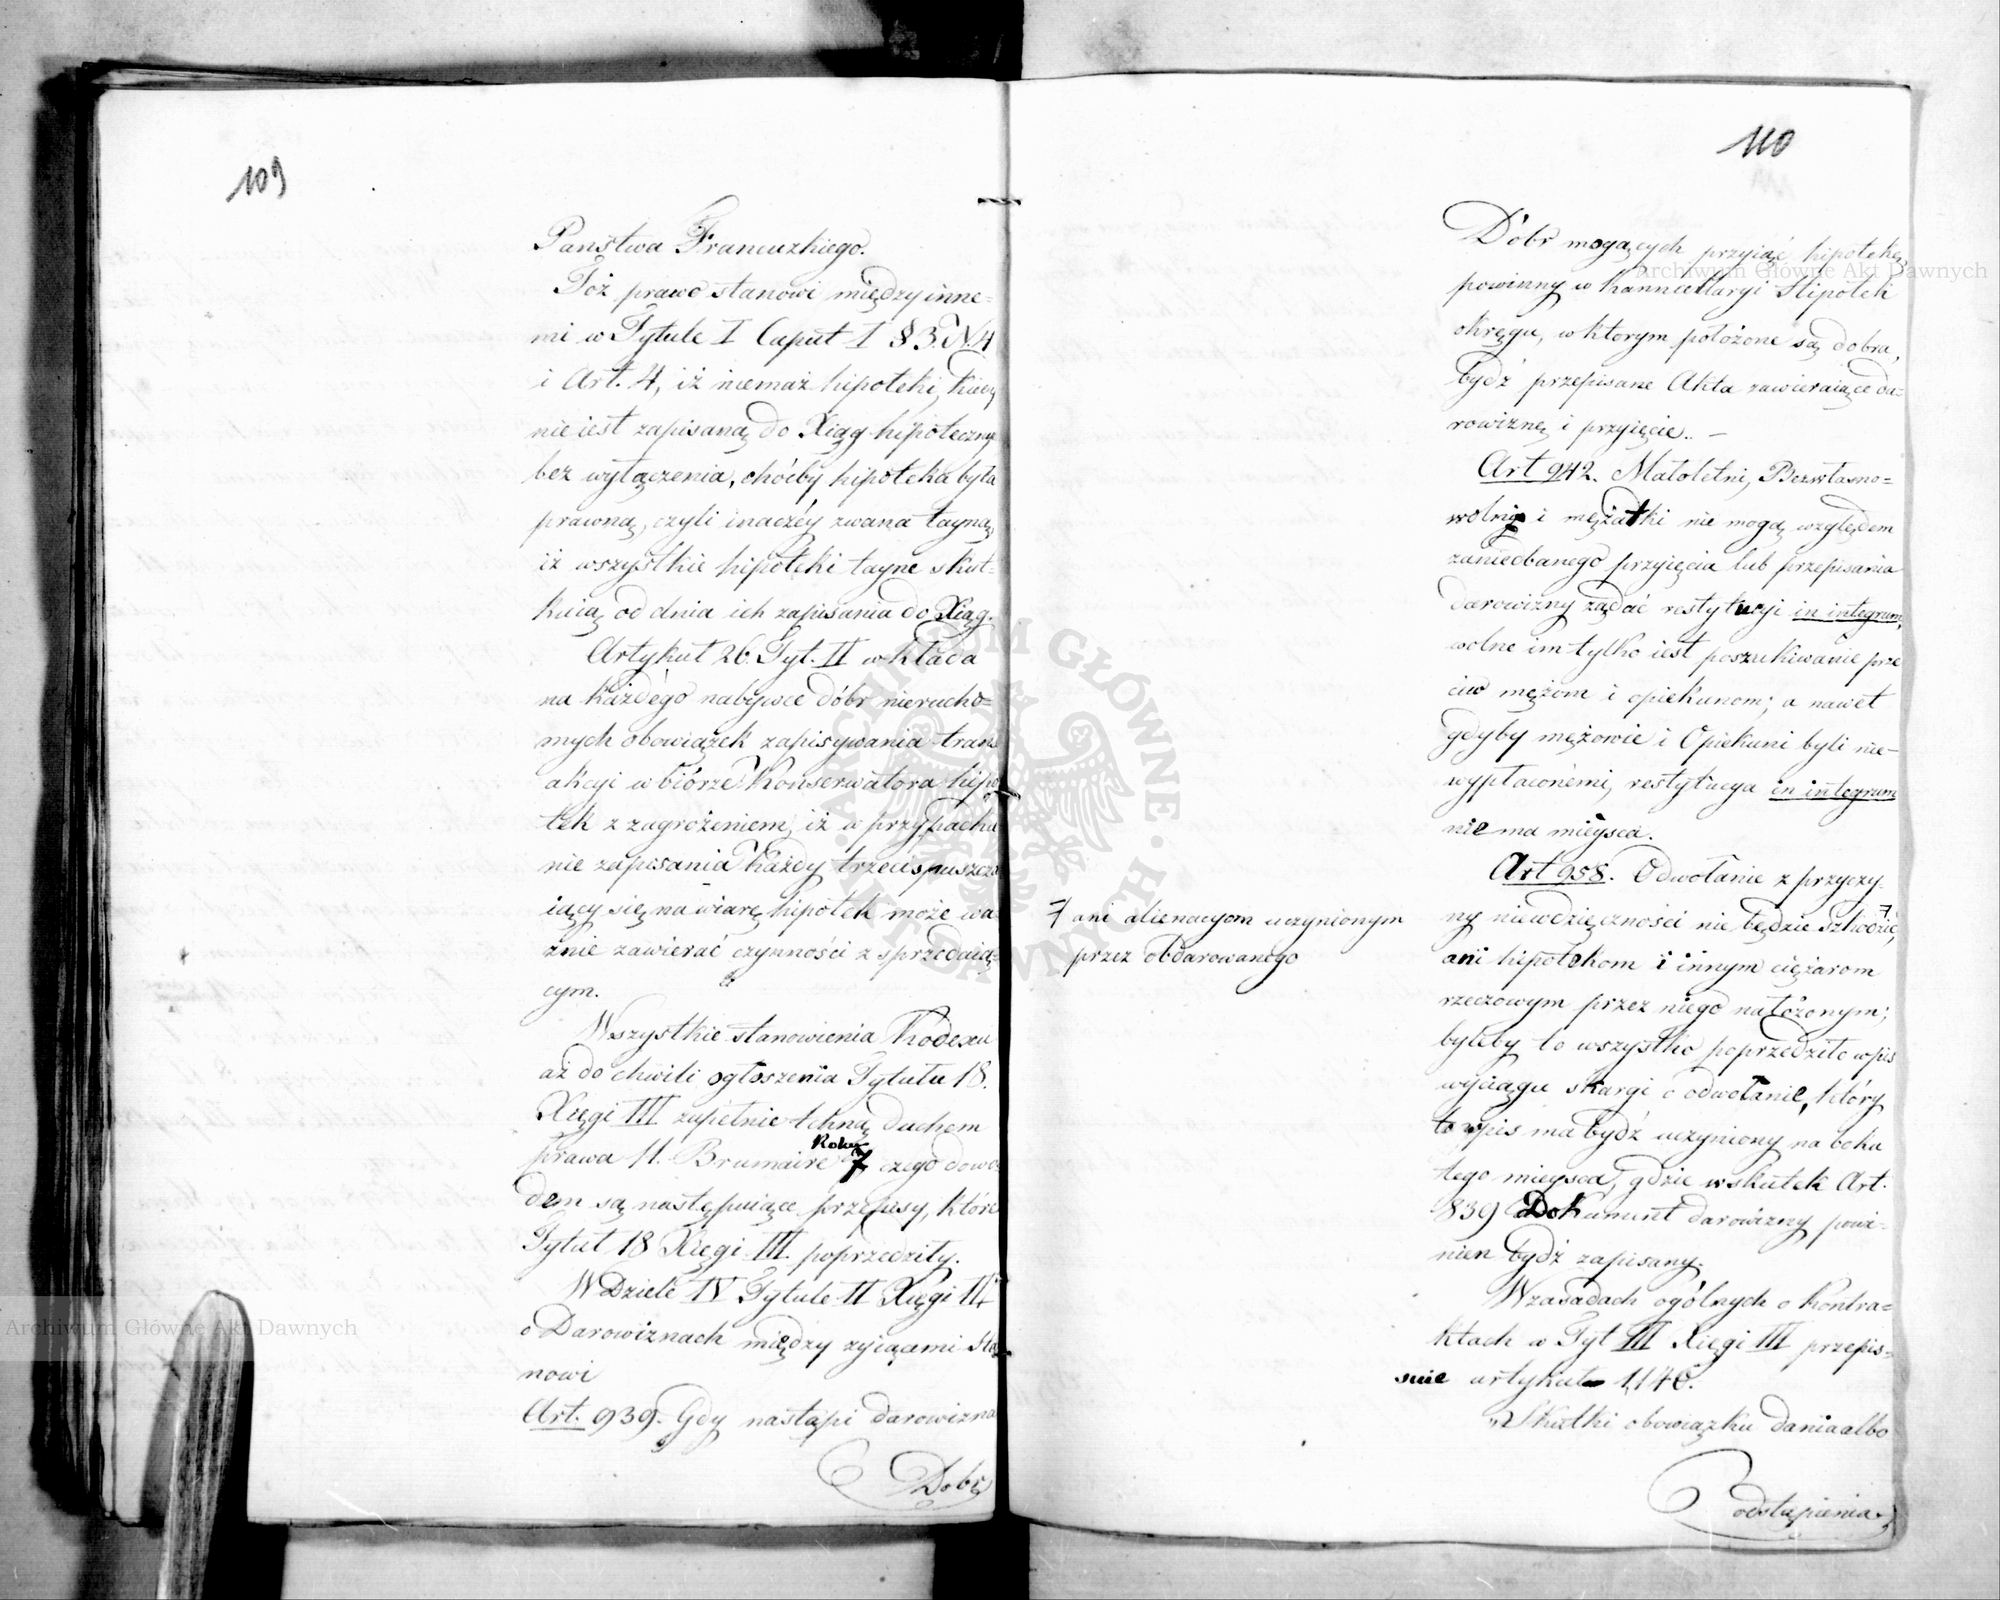 109
Państwa Francuzkiego.
Toż prawo stanowi między inne=
mi w Tytule I Caput I § 3. N. 4
i Art. 4, iż niemasz hipoteki, która
nie iest zapisaną do Xiąg hipoteczny
bez wyłączenia, choćby hipoteka była
prawną, czyli inaczéy zwana tayną,
iż wszystkie hipoteki tayne skut=
kuią od dnia ich zapisania do Xiąg.
Artykuł 26. Tyt. II wkłada
na każdego nabywcę dóbr nierucho=
mych obowiązek zapisywania trans
akcyi w biórze Konserwatora hipo
tek z zagrożeniem, iż w przypadku
nie zapisania Każdy trzeci spuszcza
iący się na wiarę hipotek może wa
żnie zawierać czynności z sprzedaią=
cym.
Wszystkie stanowienia Kodexu
aż do chwili ogłoszenia Tytułu 18.
Xięgi III zupełnie tchną duchem
prawa 11. Brumaire Roku 7, czego dowo
dem są następuiące przepisy, które
Tytuł 18 Xięgi III. poprzedziły.
W Dziele IV Tytule II Xięgi III
o Darowiznach między żyiącemi sta
nowi
Art. 939. Gdy nastąpi darowizna
Dobr
110
Dóbr mogących przyiąć hipotekę,
powinny w Kancellaryi Hipotek
okręgu, w ktorym położone są dobra,
bydź przepisane Akta zawieraiące da=
rowiznę i przyięcie. —
Art 942. Małoletni, Bezwłasno=
wolni i mężatki nie mogą względem
zaniedbanego przyięcia lub przepisania
darowizny żądać restytucyi in integrum,
wolne im tylko iest poszukiwanie prze
ciw mężom i opiekunom; a nawet
gdyby mężowie i Opiekuni byli nie=
wypłaconémi, restytucya in integrum
nie ma mieysca.
Art 958. Odwołanie z przyczy=
ny niewdzięczności nie będzie szkodzić, 7
7 ani alienacyom uczynionym
przez obdarowanego
ani hipotekom i innym ciężarom
rzeczowym przez niego nałożonym;
byleby to wszystko poprzedziło wpis
wyciągu skargi o odwołanie, który
to wpis ma bydź uczyniony na boku
tego mieysca, gdzie wskutek Art.
839 Dokument darowizny powi=
nien bydź zapisany.
W zasadach ogólnych o Kontra=
ktach w Tyt III Xięgi III przepis=
suie artykuł 1,140.
„Skutki obowiązku dania albo
odstąpienia
Archiwum Główne Akt Dawnych
Archiwum Główne Akt Dawnych
ARCHIWUM GŁÓWNE AKT DAWNYCH